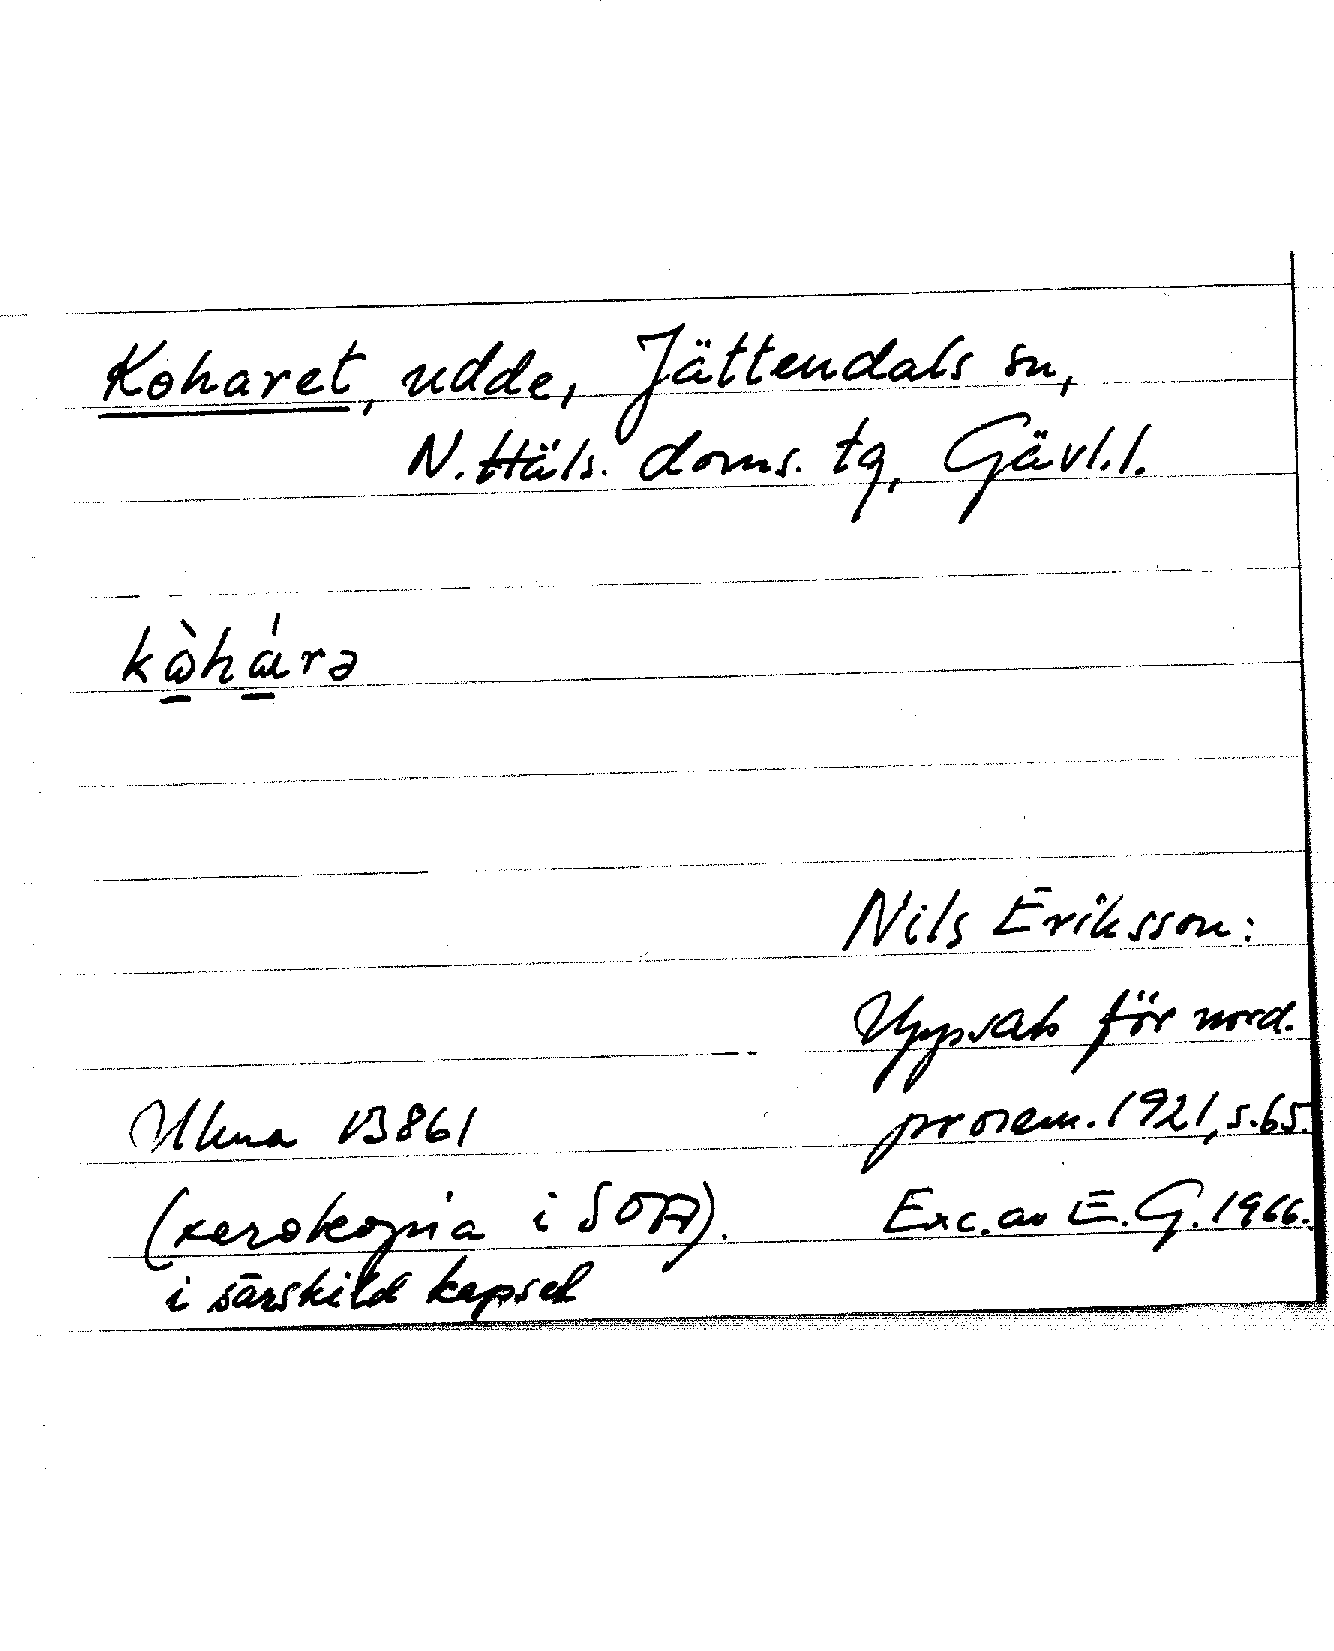 Koharet, udde, Jättendals sn,
N. Häls. doms. tg, Gävl. l.
kὼ̱hά̱rə
Nils Eriksson:
Uppsats för nord.
prosem. 1921, s. 65.
Ulma B861
(xerokopia i SOA).
Exc. av E. G. 1966.
i särskild kapsel